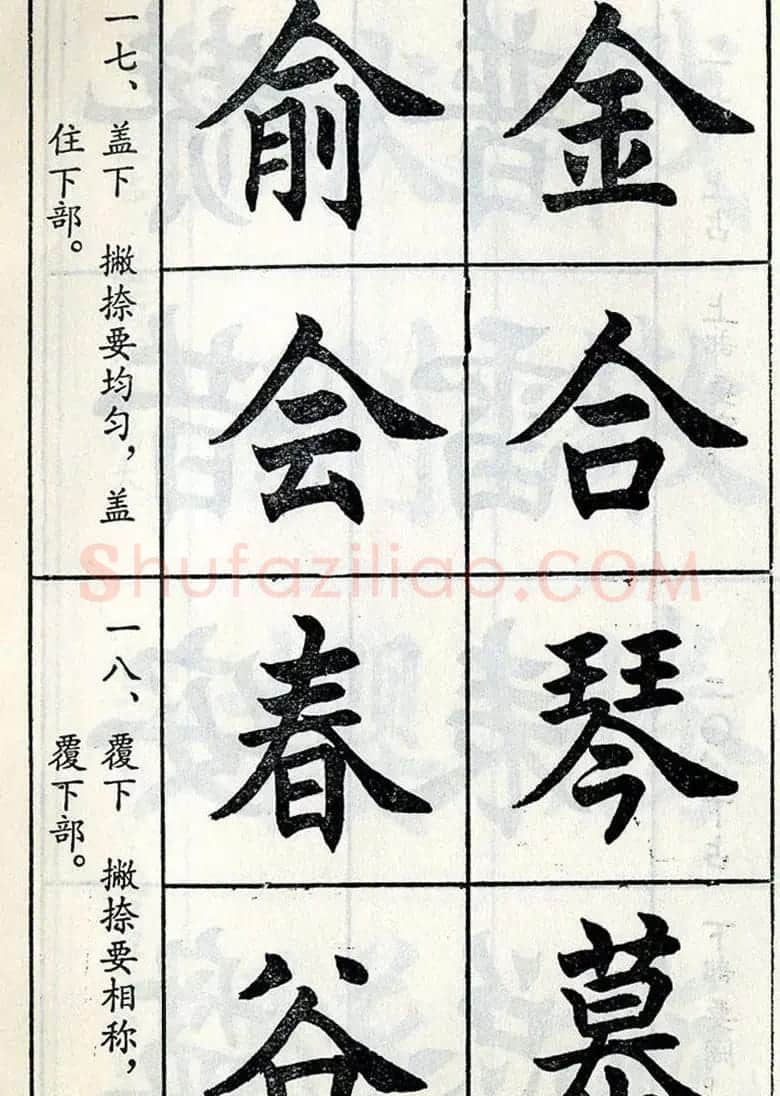 金
合
俞
会
一七、盖下 撇捺要均匀，盖
住下部。
琴
春
谷
一八、覆下 撇捺要相称，
覆下部。
Shufaziliao.COM